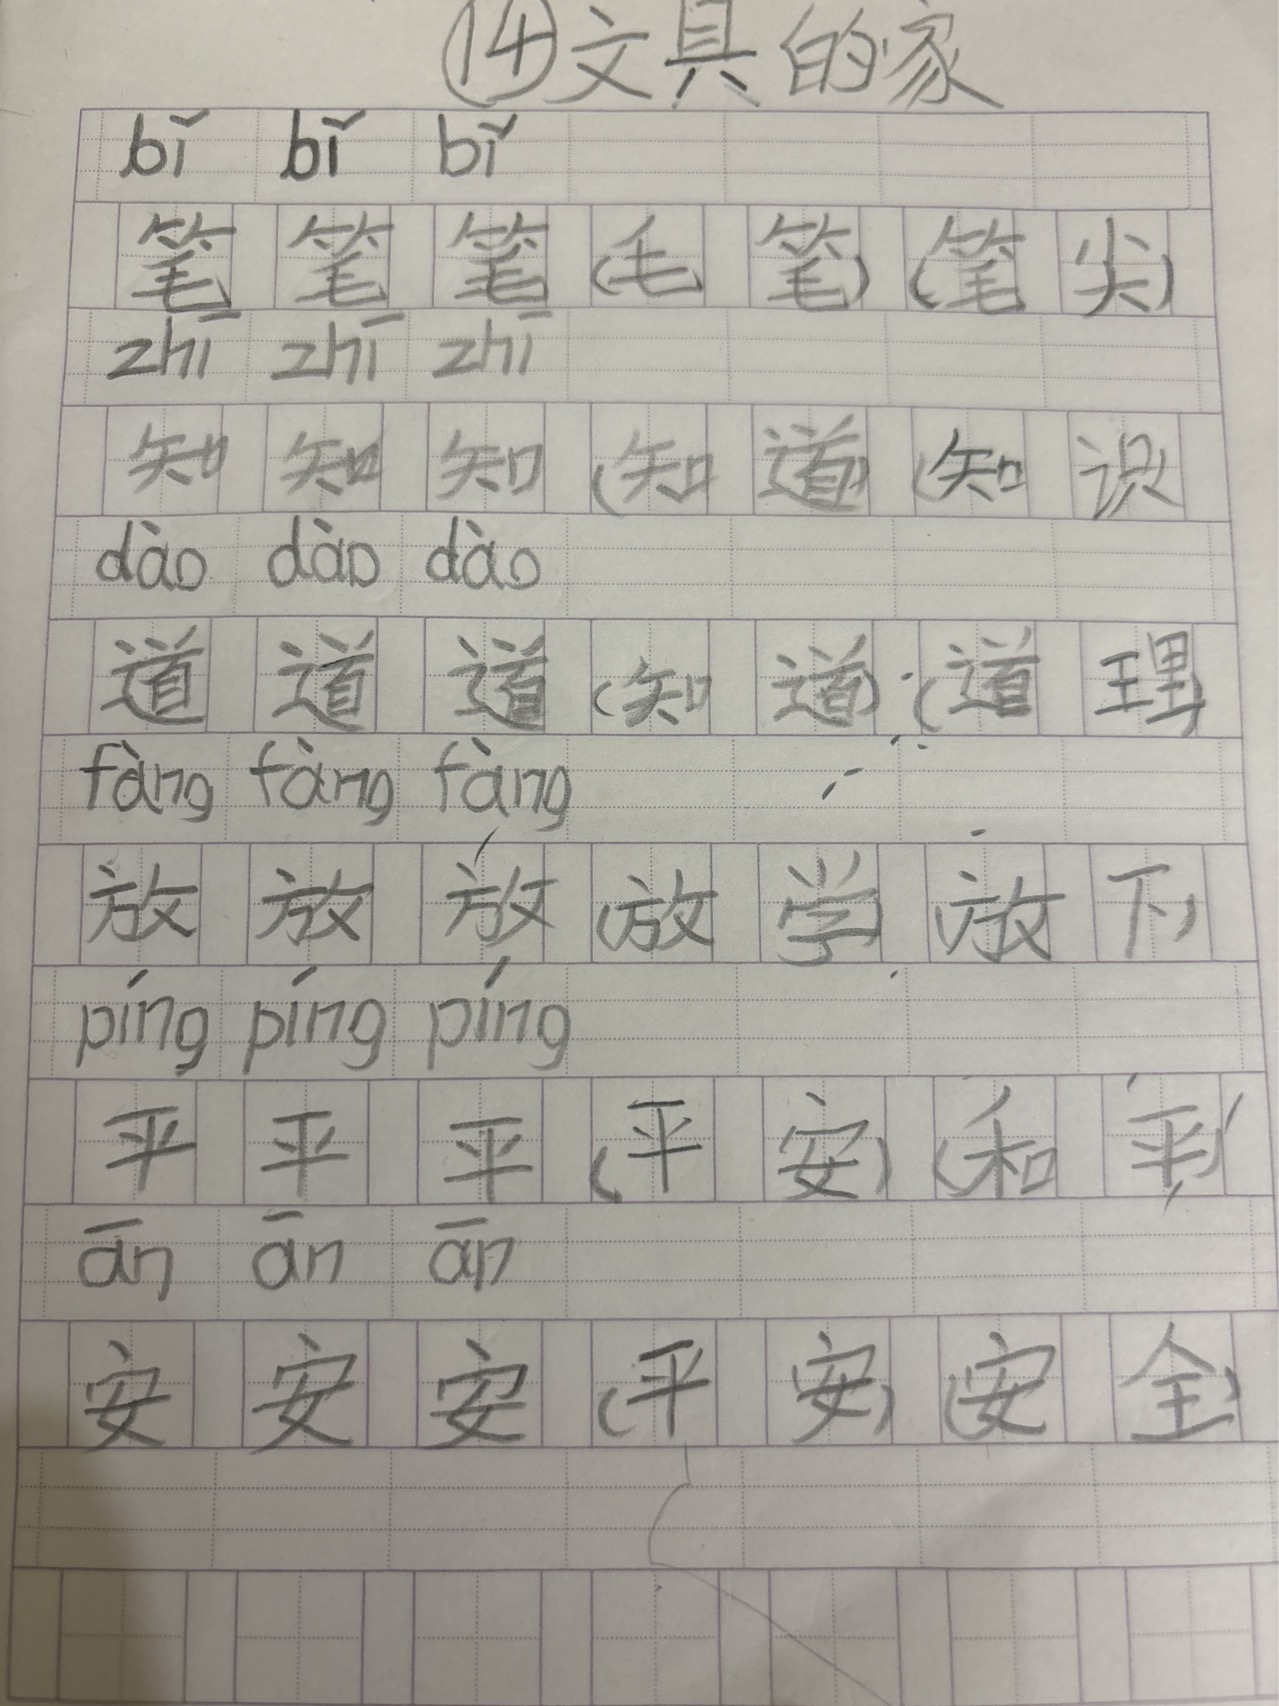 ⑭文具的家
bǐ bǐ bǐ
笔 笔 笔 (毛 笔) (笔 尖)
zhī zhī zhī
知 知 知 (知 道) (知 识
dào dào dào
道 道 道 (知 道) (道 理)
fàng fàng fàng
放 放 放 (放 学) (放 下)
píng píng píng
平 平 平 (平 安) (和 平)
ān ān ān
安 安 安 (平 安) (安 全)